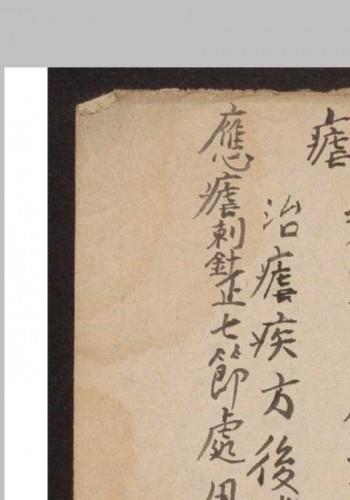 瘧
治瘧疾方後
應瘧刺針止七節處用